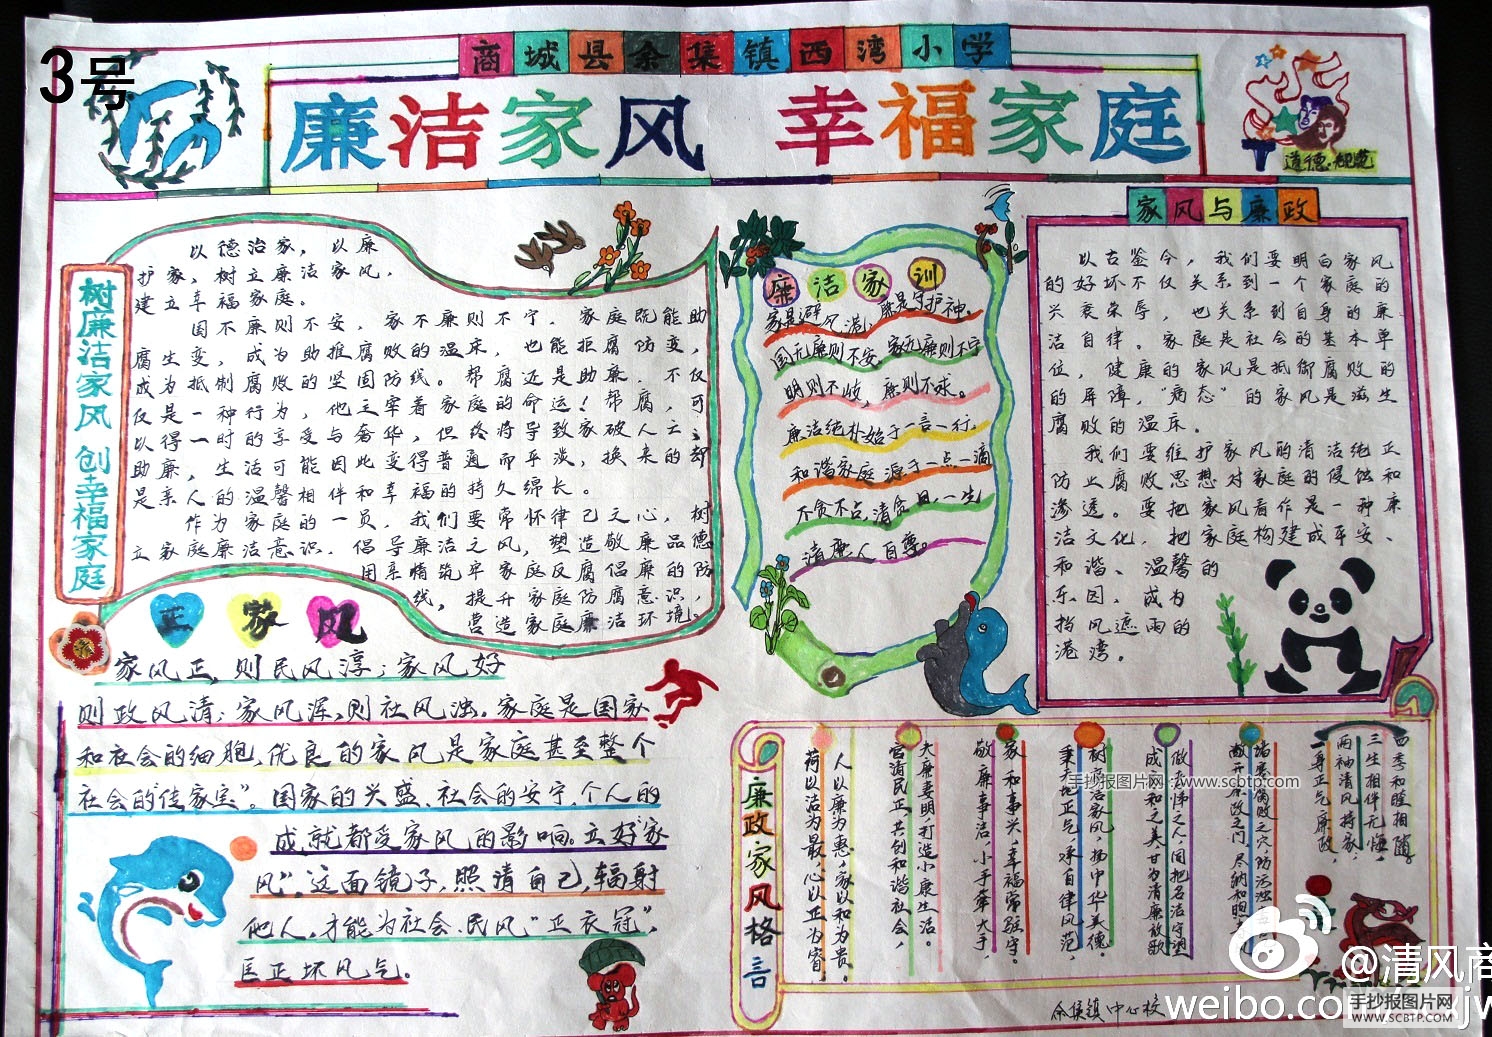 3号
商城县余集镇西湾小学
廉洁家风 幸福家庭
道德·规范
树廉洁家风 创幸福家庭
以德治家，以廉
护家，树立廉洁家风，
建立幸福家庭。
国不廉则不安，家不廉则不宁。家庭既能助
腐生变，成为助推腐败的温床，也能拒腐防变，
成为抵制腐败的坚固防线。帮腐还是助廉，不仅
仅是一种行为，他主宰着家庭的命运！帮腐，可
以得一时的享受与奢华，但终将导致家破人亡；
助廉，生活可能因此变得普通而平淡，换来的却
是亲人的温馨相伴和幸福的持久绵长。
作为家庭的一员，我们要常怀律己之心，树
立家庭廉洁意识，倡导廉洁之风，塑造敬廉品德
用亲情筑牢家庭反腐倡廉的防
线，提升家庭防腐意识，
营造家庭廉洁环境。
正家风
家风正，则民风淳；家风好
则政风清；家风浑，则社风浊。家庭是国家
和社会的细胞，优良的家风是家庭甚至整个
社会的“传家宝”。国家的兴盛、社会的安宁、个人的
成就都受家风的影响。立好“家
风”，这面镜子，照清自己，辐射
他人，才能为社会、民风“正衣冠”，
匡正坏风气。
廉洁家训
家是避风港，廉是守护神。
国无廉则不安，家无廉则不宁
明则不歧，廉则不求。
廉洁纯朴始于一言一行，
和谐家庭源于一点一滴
不贪不占，清贫自一生
清廉人自尊。
家风与廉政
以古鉴今，我们要明白家风
的好坏不仅关系到一个家庭的
兴衰荣辱，也关系到自身的廉
洁自律。家庭是社会的基本单
位，健康的家风是抵御腐败的
的屏障，“病态”的家风是滋生
腐败的温床。
我们要维护家风的清洁纯正
防止腐败思想对家庭的侵蚀和
渗透。要把家风看作是一种廉
洁文化，把家庭构建成平安、
和谐、温馨的
乐园，成为
挡风遮雨的
港湾。
廉政家风格言
人以廉为惠，家以和为贵。
荷以洁为最，心以正为宿。
夫廉妻明，打造小康生活。
官清民正，共创和谐社会，
家和事兴，幸福常驻守。
敬廉事洁，小手牵大手，
树廉洁家风，扬中华美德。
秉天地正气，承自律风范，
做孝悌之人，同把名洁守望
成谐和之美，甘为清廉放歌
堵塞腐败之穴，防污浊
敞开廉政之门，尽纳和煦
四季和睦相随。
三生相伴无悔，
两袖清风持家，
一身正气廉政，
余集镇中心校
手抄报图片网：www.scbtp.com
@清风商
weibo.com
手抄报图片网
WWW.SCBTP.COM